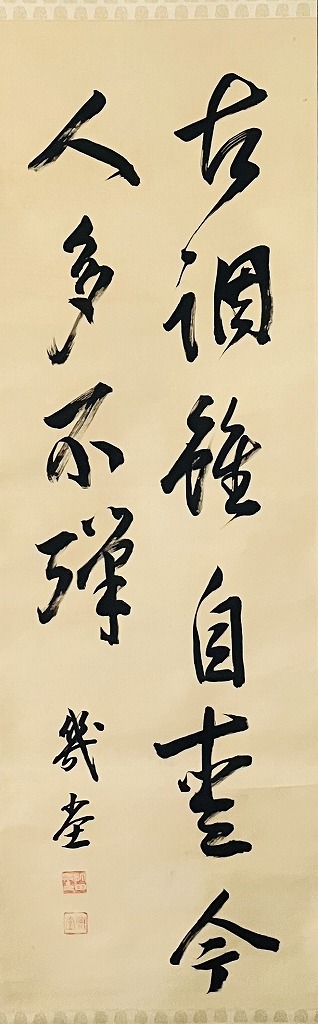 古調雖自愛今
人多不彈
幾堂